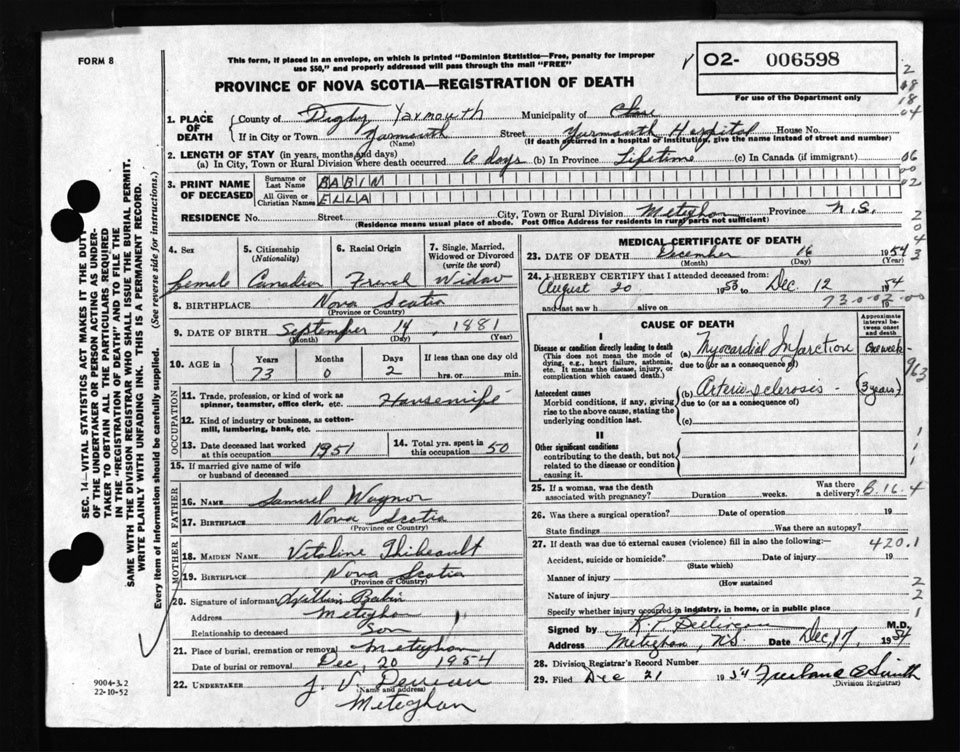 FORM 8
This form, if placed in an envelope, on which is printed "Dominion Statistics—Free, penalty for improper
use $50," and properly addressed will pass through the mail "FREE"
PROVINCE OF NOVA SCOTIA—REGISTRATION OF DEATH
O2- 006598
For use of the Department only
1. PLACE OF DEATH
County of Digby Yarmouth Municipality of Clare
If in City or Town Yarmouth Street Yarmouth Hospital House No.
(Name) (If death occurred in a hospital or institution, give the name instead of street and number)
2. LENGTH OF STAY (in years, months and days)
(a) In City, Town or Rural Division where death occurred 6 days (b) In Province Lifetime (c) In Canada (if immigrant)
3. PRINT NAME OF DECEASED
Surname or Last Name BABIN
All Given or Christian Names ELLA
RESIDENCE No. Street City, Town or Rural Division Meteghan Province N.S.
(Residence means usual place of abode. Post Office Address for residents in rural parts not sufficient)
4. Sex
female
5. Citizenship (Nationality)
Canadian
6. Racial Origin
French
7. Single, Married, Widowed or Divorced (write the word)
Widow
8. BIRTHPLACE Nova Scotia
(Province or Country)
9. DATE OF BIRTH September 14, 1881
(Month) (Day) (Year)
10. AGE in
Years Months Days If less than one day old
73 0 2 hrs. or min.
OCCUPATION
11. Trade, profession, or kind of work as spinner, teamster, office clerk, etc. Housewife
12. Kind of industry or business, as cotton-mill, lumbering, bank, etc.
13. Date deceased last worked at this occupation 1951
14. Total yrs. spent in this occupation 50
15. If married give name of wife or husband of deceased
FATHER
16. NAME Samuel Waynor
17. BIRTHPLACE Nova Scotia
(Province or Country)
MOTHER
18. MAIDEN NAME Vitaline Thibeault
19. BIRTHPLACE Nova Scotia
(Province or Country)
20. Signature of informant Babin
Address Meteghan
Relationship to deceased Son
21. Place of burial, cremation or removal Meteghan
Date of burial or removal Dec, 20 1954
22. UNDERTAKER J. V.
(Name and address)
Meteghan
MEDICAL CERTIFICATE OF DEATH
23. DATE OF DEATH December 16 1954
(Month) (Day) (Year)
24. I HEREBY CERTIFY that I attended deceased from:
August 20 1953 to Dec. 12 1954
and last saw h alive on 19
73-0-02-00
CAUSE OF DEATH
Approximate interval between onset and death
I
Disease or condition directly leading to death
(This does not mean the mode of dying, e.g., heart failure, asthenia, etc. It means the disease, injury, or complication which caused death.)
(a) Myocardial Infarction One week
due to (or as a consequence of)
963
Antecedent causes
Morbid conditions, if any, giving rise to the above cause, stating the underlying condition last.
(b) Arteriosclerosis (3 years)
due to (or as a consequence of)
(c)
II
Other significant conditions
contributing to the death, but not related to the disease or condition causing it.
25. If a woman, was the death associated with pregnancy? Duration weeks. Was there a delivery?
B.16.4
26. Was there a surgical operation? Date of operation 19
State findings Was there an autopsy?
27. If death was due to external causes (violence) fill in also the following:—
420.1
Accident, suicide or homicide? Date of injury 19
(State which)
Manner of injury
(How sustained)
Nature of injury
Specify whether injury occurred in industry, in home, or in public place
Signed by M.D.
Address Meteghan, N.S. Date Dec, 17 1954
28. Division Registrar's Record Number
29. Filed Dec 21 1954 Smith
(Division Registrar)
SEC. 14—VITAL STATISTICS ACT MAKES IT THE DUTY
OF THE UNDERTAKER OR PERSON ACTING AS UNDER-
TAKER TO OBTAIN ALL THE PARTICULARS REQUIRED
IN THE "REGISTRATION OF DEATH" AND TO FILE THE
SAME WITH THE DIVISION REGISTRAR WHO SHALL ISSUE THE BURIAL PERMIT.
WRITE PLAINLY WITH UNFADING INK. THIS IS A PERMANENT RECORD.
Every item of information should be carefully supplied. (See reverse side for instructions.)
9004-3.2
22-10-52